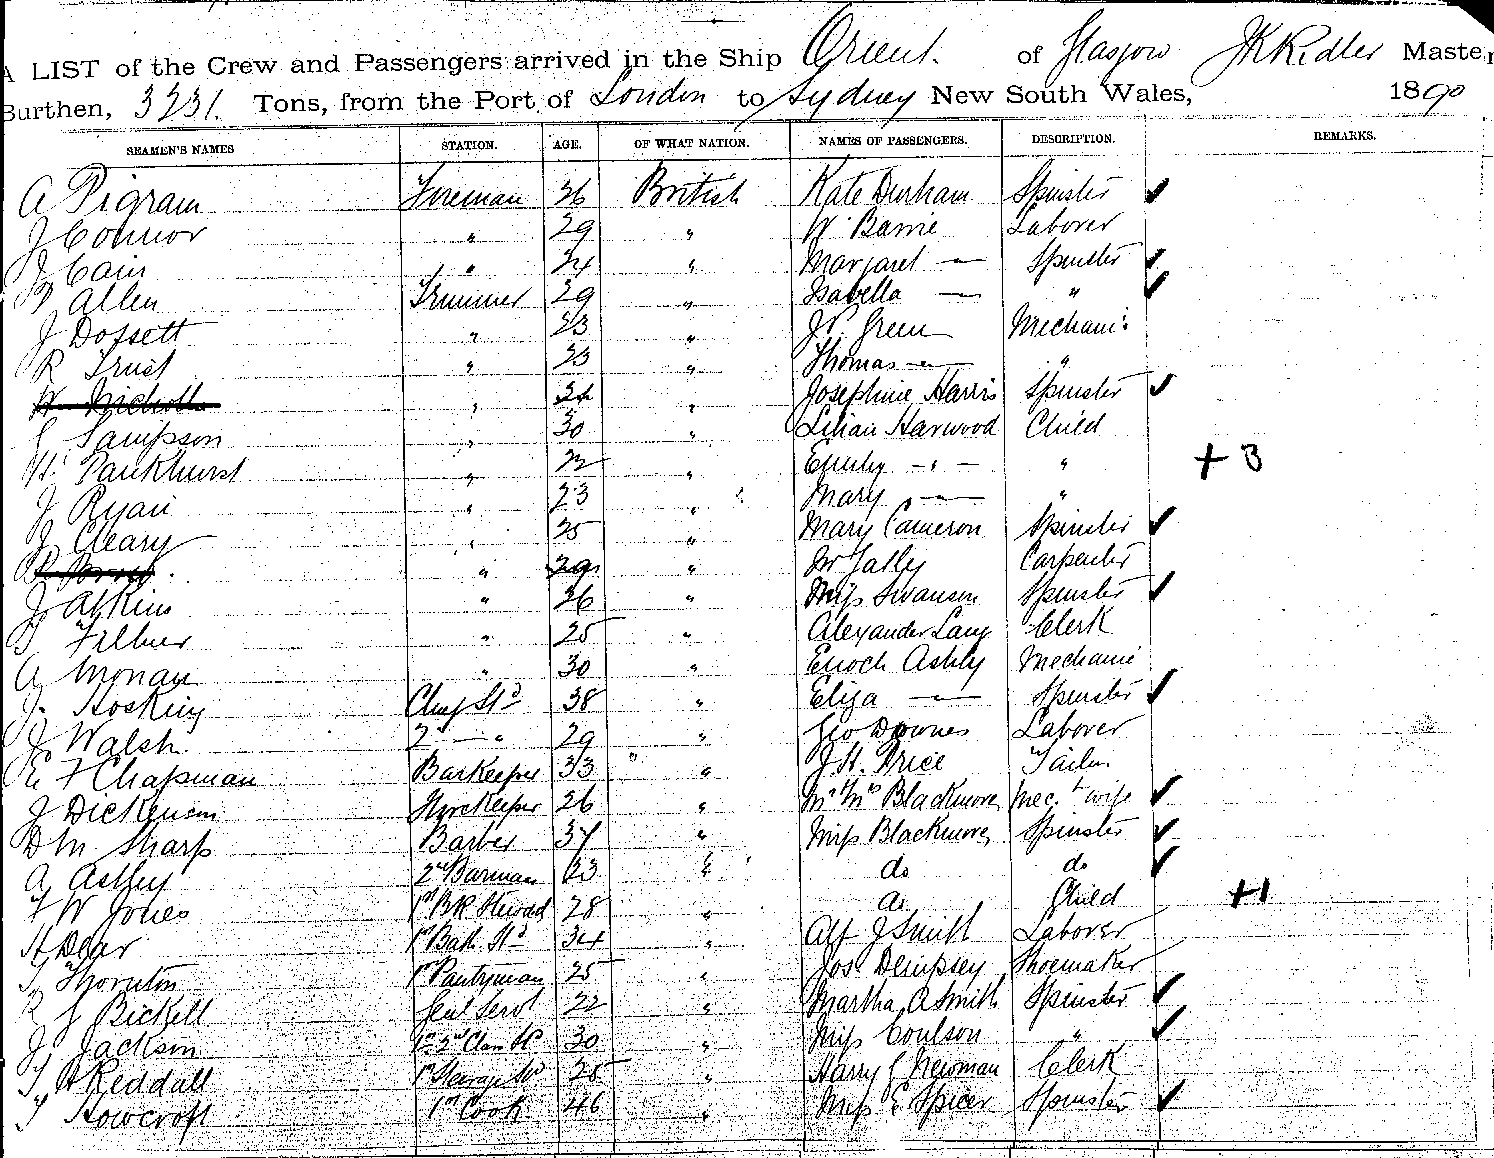 A LIST of the Crew and Passengers arrived in the Ship Orient. of Glasgow JKRidler Master
Burthen, 3231. Tons, from the Port of London to Sydney New South Wales, 1890
SEAMEN'S NAMES STATION. AGE. OF WHAT NATION. NAMES OF PASSENGERS. DESCRIPTION. REMARKS.
A Pigram Fireman 36 British Kate Durham Spinster ✓
J Connor " 29 " W. Barrie Laborer
J Cain " 24 " Margaret — Spinster ✓
Allen Trimmer 29 " Isabella — " ✓
J Dossett " 23 " Green Mechanic
R Trust " 23 " Thomas — "
W Nicholls " 24 " Josephine Harris Spinster ✓
Sampson " 30 " Lilian Harwood Child
H. Pankhurst " 22 " Emily - " - " + 3
J Ryan " 23 " Mary — "
J Cleary " 25 " Mary Cameron Spinster ✓
" 29 " Carpenter
J Atkins " 36 " Miss Swanson Spinster ✓
" 25 " Alexander Lang Clerk
A Monan " 30 " Enoch Ashby Mechanic
J. Hosking 38 " Eliza — Spinster ✓
J Walsh 2 — " 29 " Geo Downes Laborer
E F Chapman Barkeeper 33 " J. H. Price Tailor
J Dickenson Storekeeper 26 " Mr Mrs Blackmore Mec. + wife ✓
D M Sharp Barber 37 " Miss Blackmore Spinster ✓
A Ashley 2nd Barman 23 " do do ✓
F W Jones 1st BR Steward 28 " do Child +1
H Dear 1st Bath Std 34 " Alf J Smith Laborer
T Thornton 1st Pantryman 25 " Jos. Dempsey Shoemaker
R J Bickell Genl Servt 22 " Martha A Smith Spinster ✓
J Jackson 1st 2nd Class St 30 " Miss Coulson " ✓
T H Reddall 1st Steerage Sd 25 " Harry J Newman Clerk
T Howcroft 1st Cook 46 " Miss E Spicer Spinster ✓